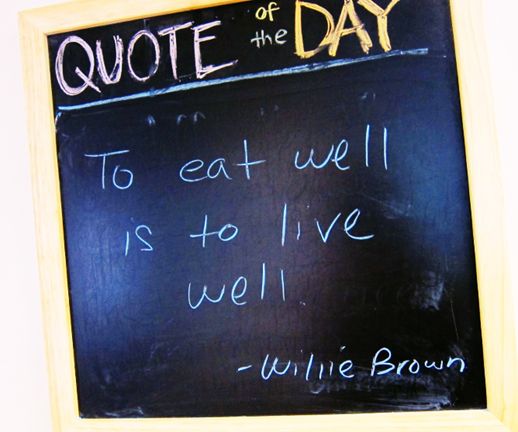 QUOTE of the DAY
To eat well
is to live
well.
- Willie Brown